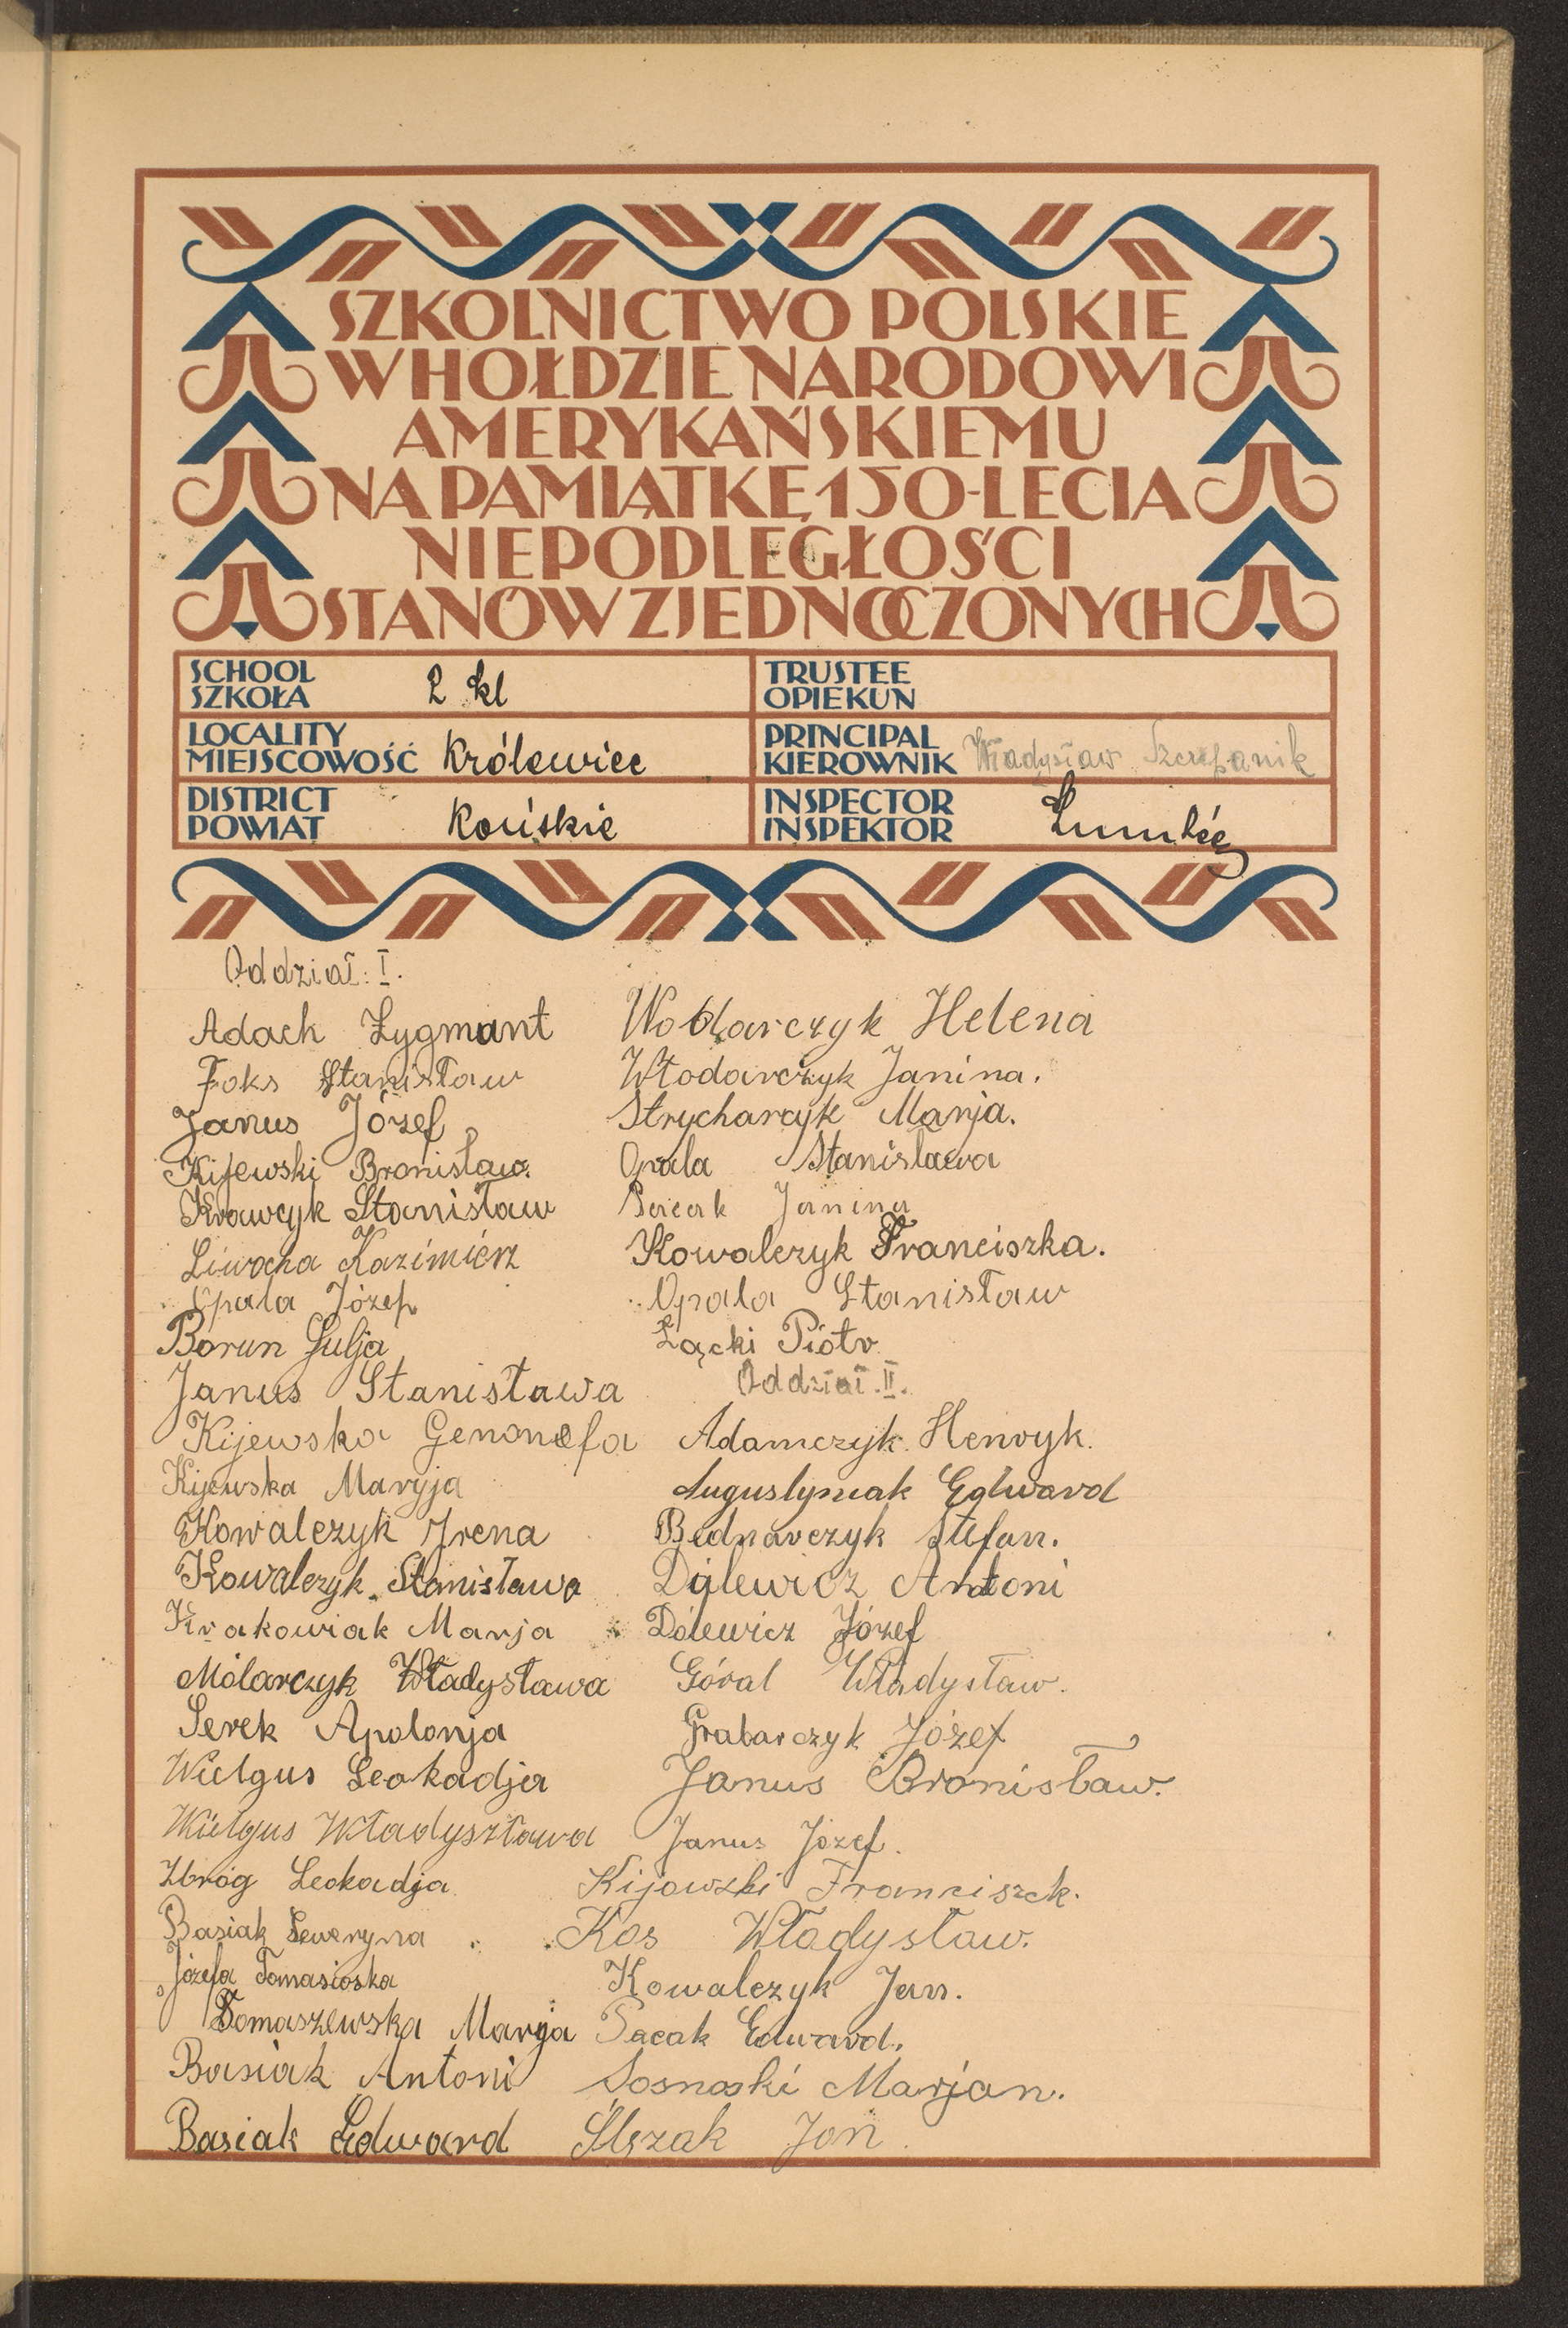 SZKOLNICTWO POLSKIE
W HOŁDZIE NARODOWI
AMERYKAŃSKIEMU
NA PAMIĄTKĘ 150-LECIA
NIEPODLEGŁOŚCI
STANÓW ZJEDNOCZONYCH
SCHOOL
SZKOŁA 2 kl
TRUSTEE
OPIEKUN
LOCALITY
MIEJSCOWOŚĆ Królewiec
PRINCIPAL
KIEROWNIK Władysław Szczepanik
DISTRICT
POWIAT Końskie
INSPECTOR
INSPEKTOR
Oddział I.
Adach Zygmunt
Foks Stanisław
Janus Józef
Kijewski Bronisław.
Krawcyk Stanisław
Liwocha Kazimierz
Opala Józef
Borun Julja
Janus Stanisława
Kijewska Genonefa
Kijewska Maryja
Kowalczyk Irena
Kowalczyk Stanisława
Krakowiak Marja
Mólarczyk Władysława
Serek Apolonja
Wielgus Leokadja
Wielgus Władyszława
Zbróg Leokadja
Basiak Seweryna
Józefa Tomasioska
Tomaszewska Marja
Basiak Antoni
Basiak Edward
Helena
Włodarczyk Janina.
Strycharcyk Marja.
Opala Stanisława
Janina
Kowalczyk Franciszka.
Opala Stanisław
Łącki Piotr
Oddział II.
Adamczyk Henryk.
Augustyniak Edward
Bednarczyk Stefan.
Dalewicz Antoni
Dolewicz Józef
Góral Władysław.
Grabarczyk Józef
Janus Bronisław.
Janus Józef.
Kijowski Franciszek.
Kos Władysław.
Kowalczyk Jan.
Pacak Edward.
Sosnoski Marjan.
Ślęzak Jan.